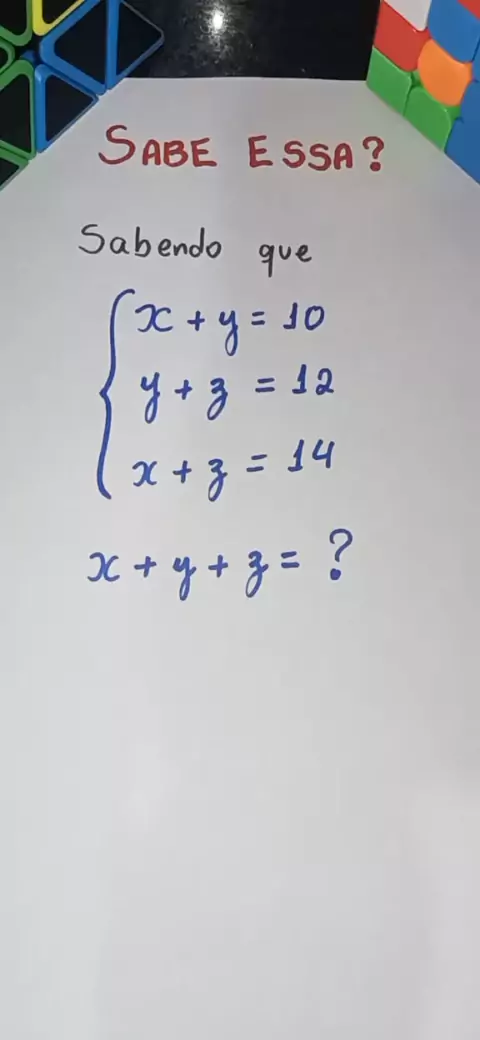 SABE ESSA?
Sabendo que
x + y = 10
y + z = 12
x + z = 14
x + y + z = ?